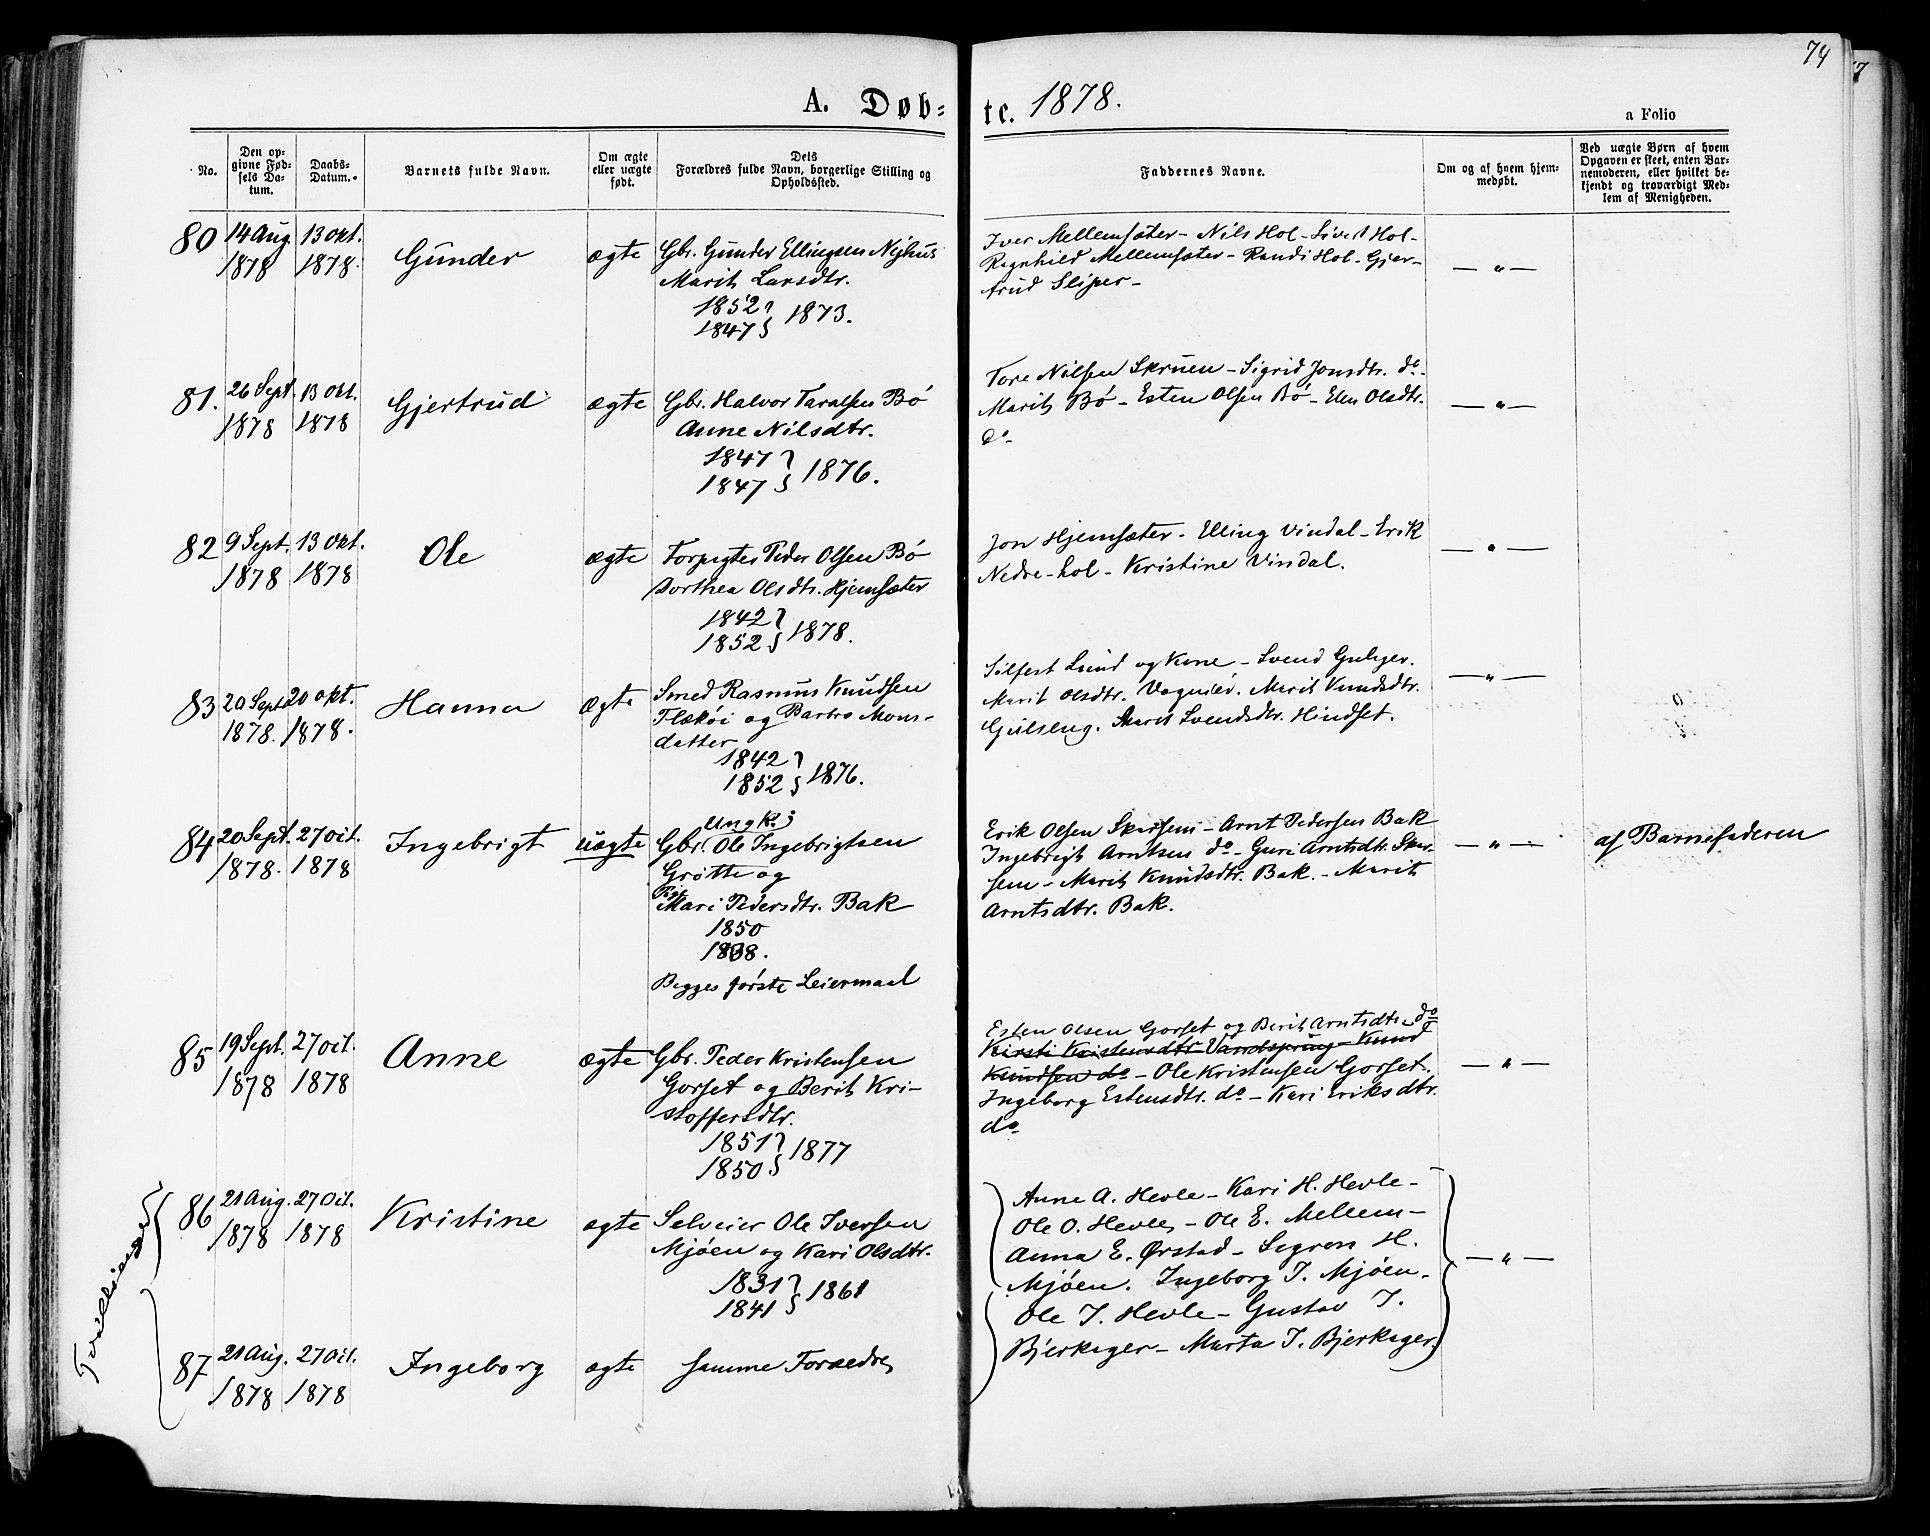 74
A. Døb= te. 1878.
a Folio
No.
Den op-
givne Fød-
sels Da-
tum.
Daabs-
Datum.
Barnets fulde Navn.
Om ægte
eller uægte
født.
Dets
Forældres fulde Navn, borgerlige Stilling og
Opholdssted.
Faddernes Navne.
Om og af hvem hjem-
medøbt.
Ved uægte Børn af hvem
Opgaven er skeet, enten Bar-
nemoderen, eller hvilket be-
kjendt og troværdigt Med-
lem af Menigheden.
80
14 Aug.
1878
13 okt.
1878.
Gunder
ægte
Gbr. Gunder Ellingsen Nyhus
Marit Larsdtr.
1852
1847 } 1873.
Iver Mellemsæter - Nils Hol - Sivert Hol -
Ragnhild Mellemsæter - Randi Hol - Gjer-
trud Sliper -
— " —
81.
26 Sept.
1878
13 okt.
1878
Gjertrud
ægte
Gbr. Halvor Taralsen Bö
Anne Nilsdtr.
1847
1847 } 1876.
Tore Nilsen Skruen - Sigrid Jonsdtr. do -
Marit Bö - Esten Olsen Bö - Elen Olsdtr.
do -
— " —
82
9 Sept.
1878
13 okt.
1878
Ole
ægte
Forpagter Peder Olsen Bö
Dorthea Olsdtr. Hjemsæter
1842
1852 } 1878.
Jon Hjemsæter - Elling Vindal - Erik
Nedre-hol - Kristine Vindal.
— " —
83
20 Sept
1878.
20 okt.
1878.
Hanna
ægte
Smed Rasmus Knudsen
Flaköi og Barbro Mons-
datter
1842
1852 } 1876.
Silfest Lund og Kone - Svend
Marit Olsdtr. Marit Knudsdtr.
Gulseng. Marit Svendsdtr. Hindset.
— " —
84
20 Sept.
1878.
27 oct.
1878
Ingebrigt
uægte
Ungk.
Gbr. Ole Ingebrigtsen
Grötte og
Pige
Mari Pedersdtr. Bak
1850
1838.
Begges förste Leiermaal
Erik Olsen Skarsem - Arnt Pedersen Bak
Ingebrigt Arntsen do - Guri Arntsdtr. Skar-
sem - Marit Knudsdtr. Bak. - Marit
Arntsdtr. Bak.
— " —
af Barnefaderen
85
19 Sept.
1878
27 oct.
1878
Anne
ægte
Gbr. Peder Kristensen
Gorset og Berit Kri-
stoffersdtr.
1851
1850 } 1877
Esten Olsen Gorset og Berit Arntsdtr. do
Kirsti Kristensdtr Vandsprung - Knud
Knudsen do - Ole Kristensen Gorset -
Ingeborg Estensdtr. do - Kari Eriksdtr.
do
— " —
Tvillinger
86
21 Aug.
1878
27 Oct.
1878
Kristine
ægte
Selveier Ole Iversen
Mjöen og Kari Olsdtr.
1831
1841 } 1861
Anne A. Hevle - Kari H. Hevle -
Ole O. Hevle - Ole E. Mellem -
Anna E. Ørstad - Segron H.
Mjöen. Ingeborg I. Mjöen.
Ole J. Hevle - Gustav J.
Bjerkager - Marta J. Bjerkager.
— " —
87
21 Aug.
1878
27 Oct.
1878
Ingeborg
ægte
samme Forældre